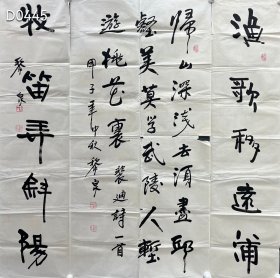 D0445
渔歌移遠浦
歸山深淺去須盡邱
壑美莫学武陵人暫
遊桃花裏 裴迪詩一首
甲子年中秋
牧笛弄斜陽